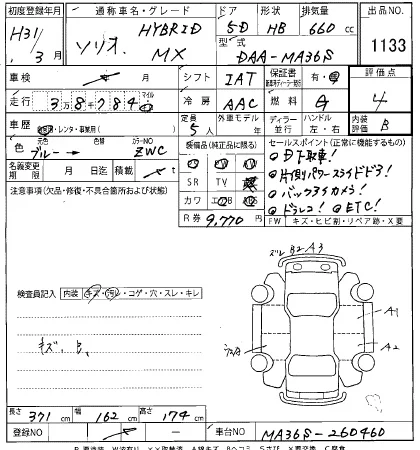 初度登録年月 通称車名・グレード ドア 形状 排気量 出品NO.
H31/3月 ソリオ HYBRID MX 5D HB 660 cc 1133
型式 DAA-MA36S
車検 月 シフト IAT 保証書 有・ 評価点
走行 38784 マイル 冷房 AAC 燃料 G 4
車歴 ・レンタ・事業用( ) 定員 5人 外車モデル年 ディーラー 並行 ハンドル 左・右 内装評価 B
色 元色 ブルー → 色替 カラーNO ZWC 装備品(純正品に限る) セールスポイント(正常に機能するもの)
名義変更期限 月 日迄 積載 t SR TV ◎下取車!
注意事項(欠品・修復・不具合箇所および状態) カワ ◎片側パワースライドドア!
R券 9,770円 ◎バックカメラ!
◎ドラレコ! ◎ETC!
FW キズ・ヒビ割・リペア跡・X要
検査員記入 内装 キズ・汚レ・コゲ・穴・スレ・キレ
B2 A3
A1
A2
長さ 371 cm 幅 162 cm 高さ 174 cm
登録NO - 車台NO MA36S-260460